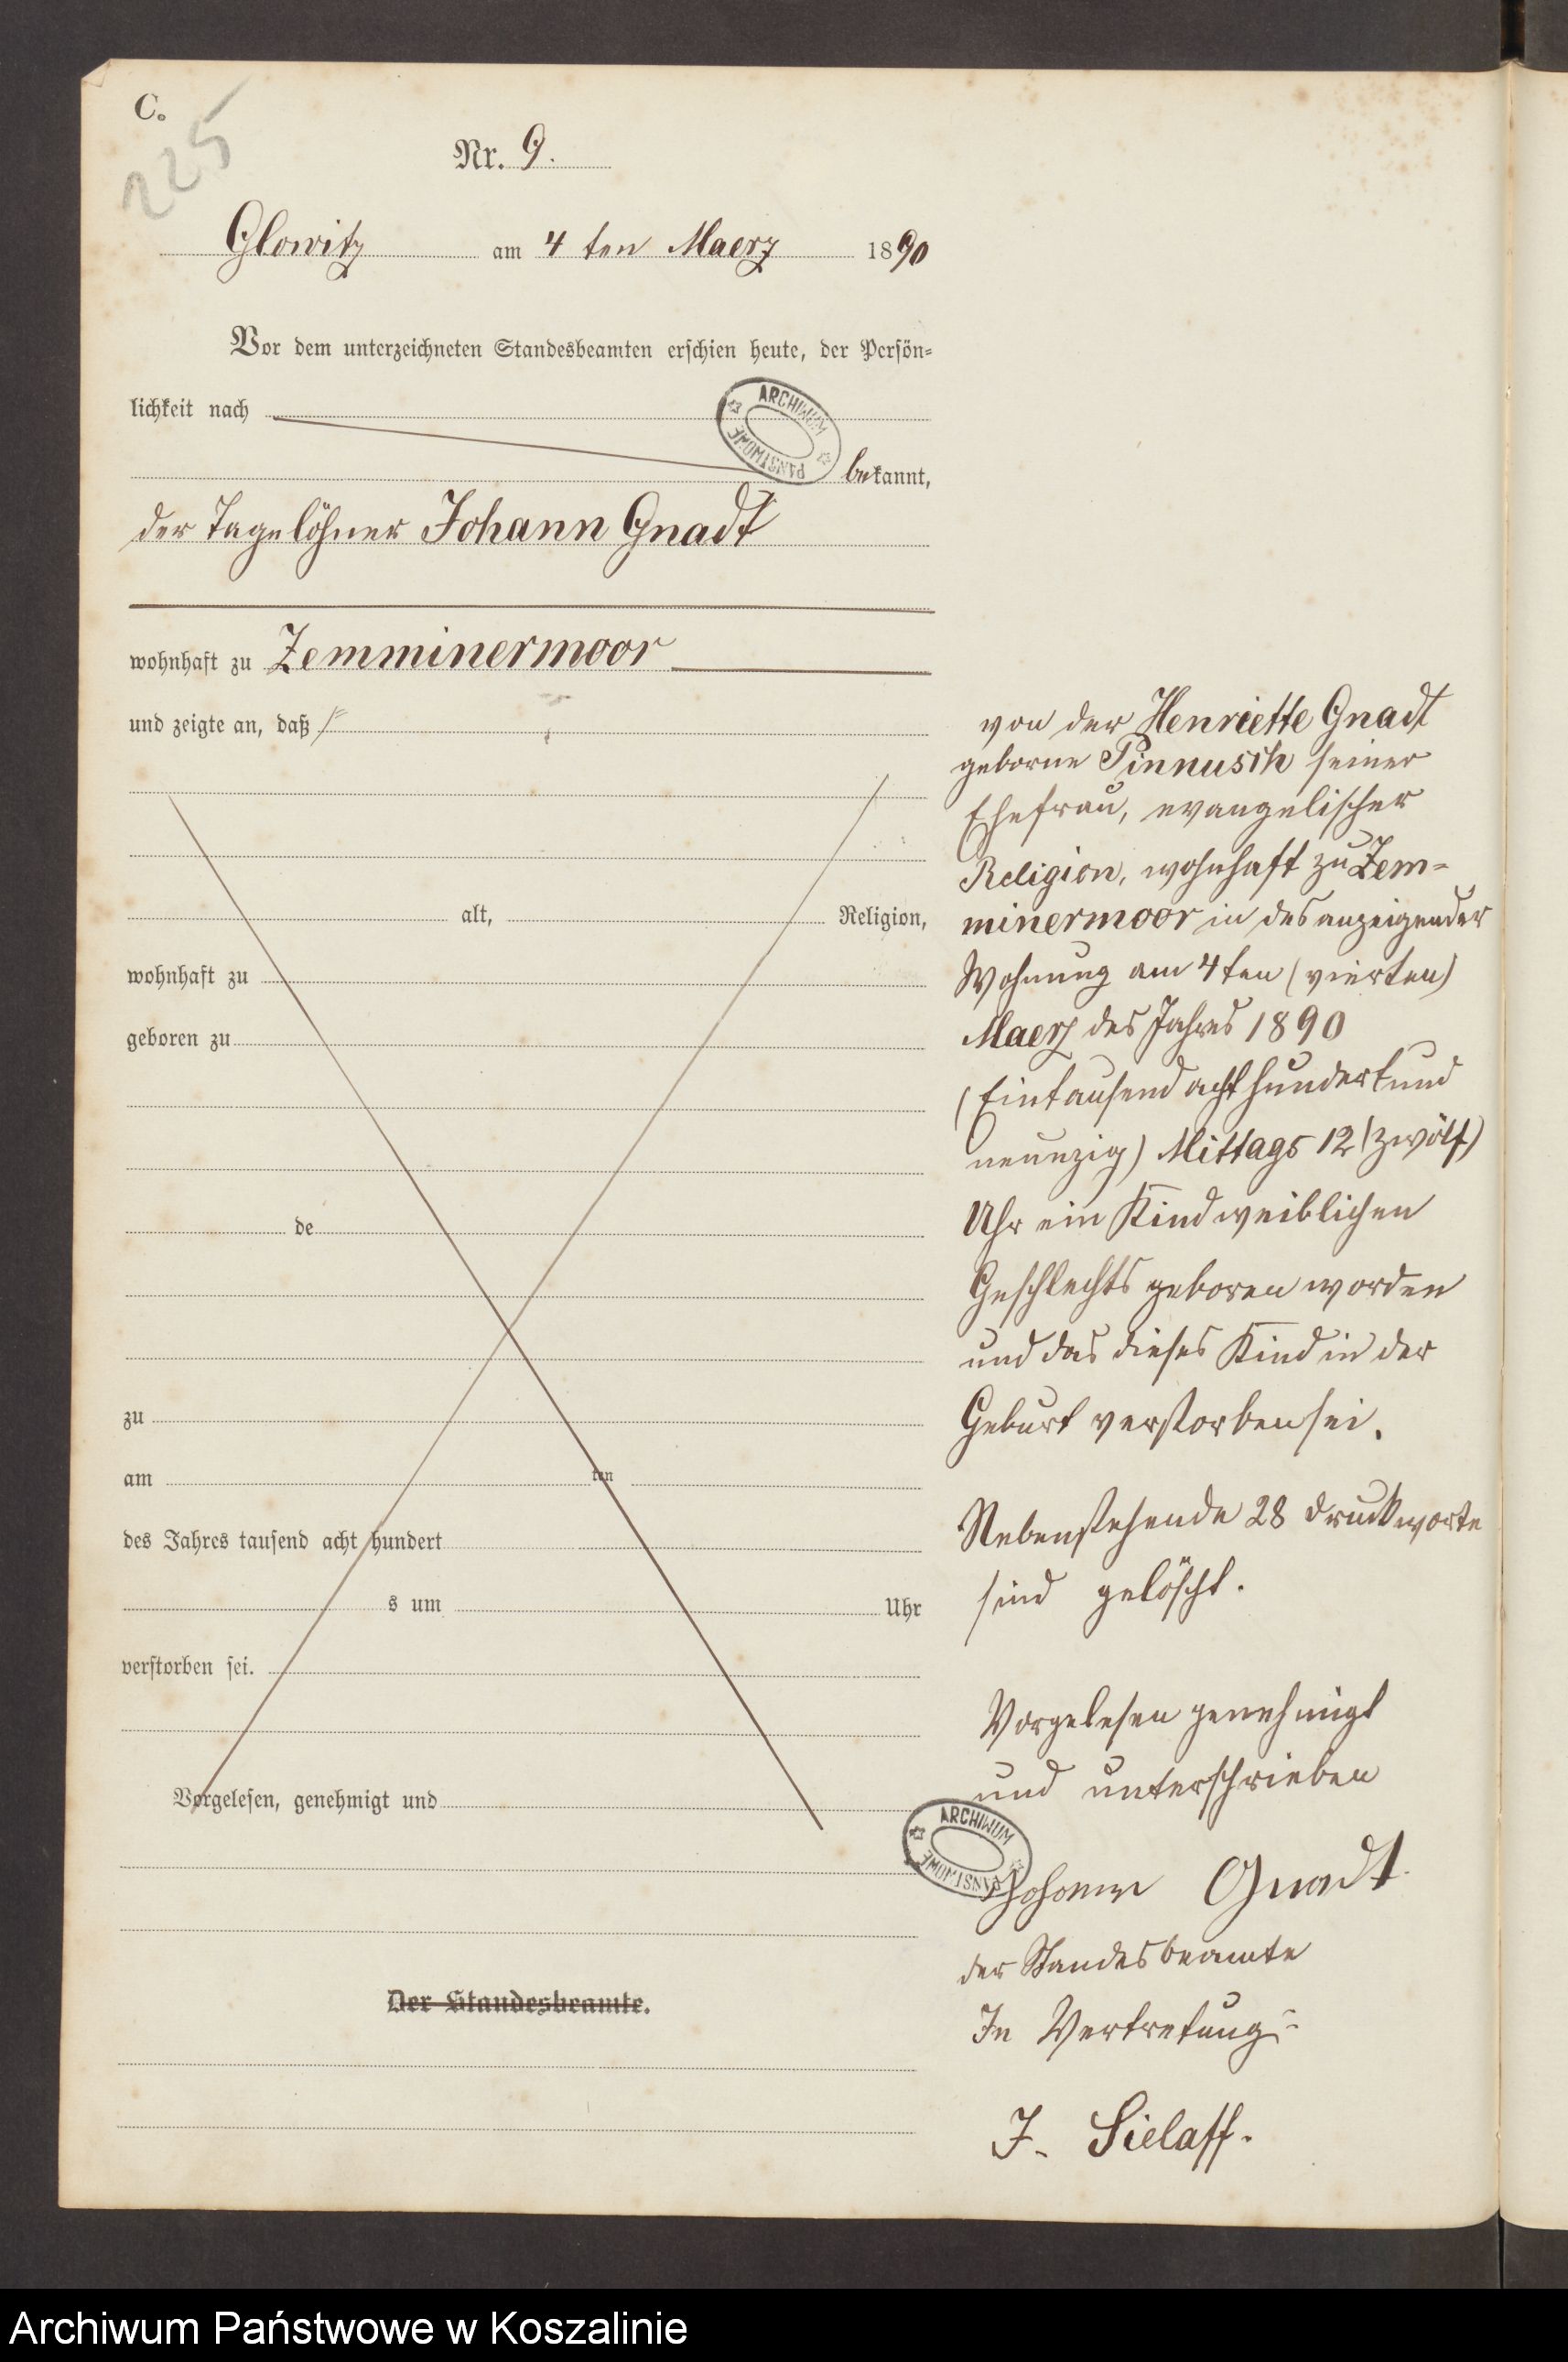 C.
225
Nr. 9.
Glowitz am 4 ten Maerz 1890
Vor dem unterzeichneten Standesbeamten erschien heute, der Persön-
lichkeit nach
bekannt,
der Tagelöhner Johann Gnadt
wohnhaft zu Zemminermoor
und zeigte an, daß
alt, Religion,
wohnhaft zu
geboren zu
de
zu
am ten
des Jahres tausend acht hundert
s um Uhr
verstorben sei.
Vorgelesen, genehmigt und
Der Standesbeamte.
von der Henriette Gnadt
geborne Pinnusch seiner
Ehefrau, evangelischer
Religion, wohnhaft zu Zem-
minermoor in des anzeigender
Wohnung am 4 ten (vierten)
Maerz des Jahres 1890
(Eintausend acht hundert und
neunzig) Mittags 12 (zwölf)
Uhr ein Kind weiblichen
Geschlechts geboren worden
und das dieses Kind in der
Geburt verstorben sei.
Nebenstehende 28 Druckworte
sind gelöscht.
Vorgelesen genehmigt
und unterschrieben
Johann Gnadt
der Standesbeamte
In Vertretung:
J. Sielaff.
ARCHIWUM PAŃSTWOWE
ARCHIWUM PAŃSTWOWE
Archiwum Państwowe w Koszalinie